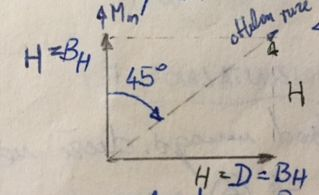 Mm
H = B_H
45°
H
H = D = B_H